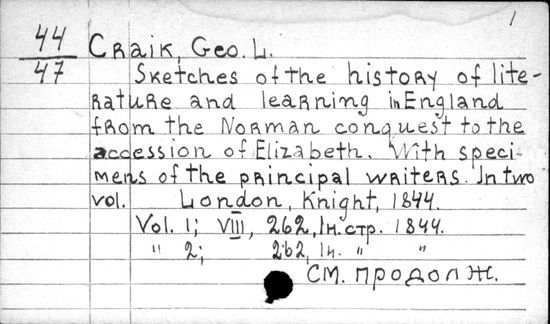 1
44/47 Craik, Geo. L.
Sketches of the history of lite-
rature and learning in England
from the Norman conquest to the
accession of Elizabeth. With speci-
mens of the principal writers. In two
vol. London, Knight, 1844.
Vol. 1; VIII, 262, 1н. стр. 1844.
" 2; 262, 1н. " "
См. продолж.